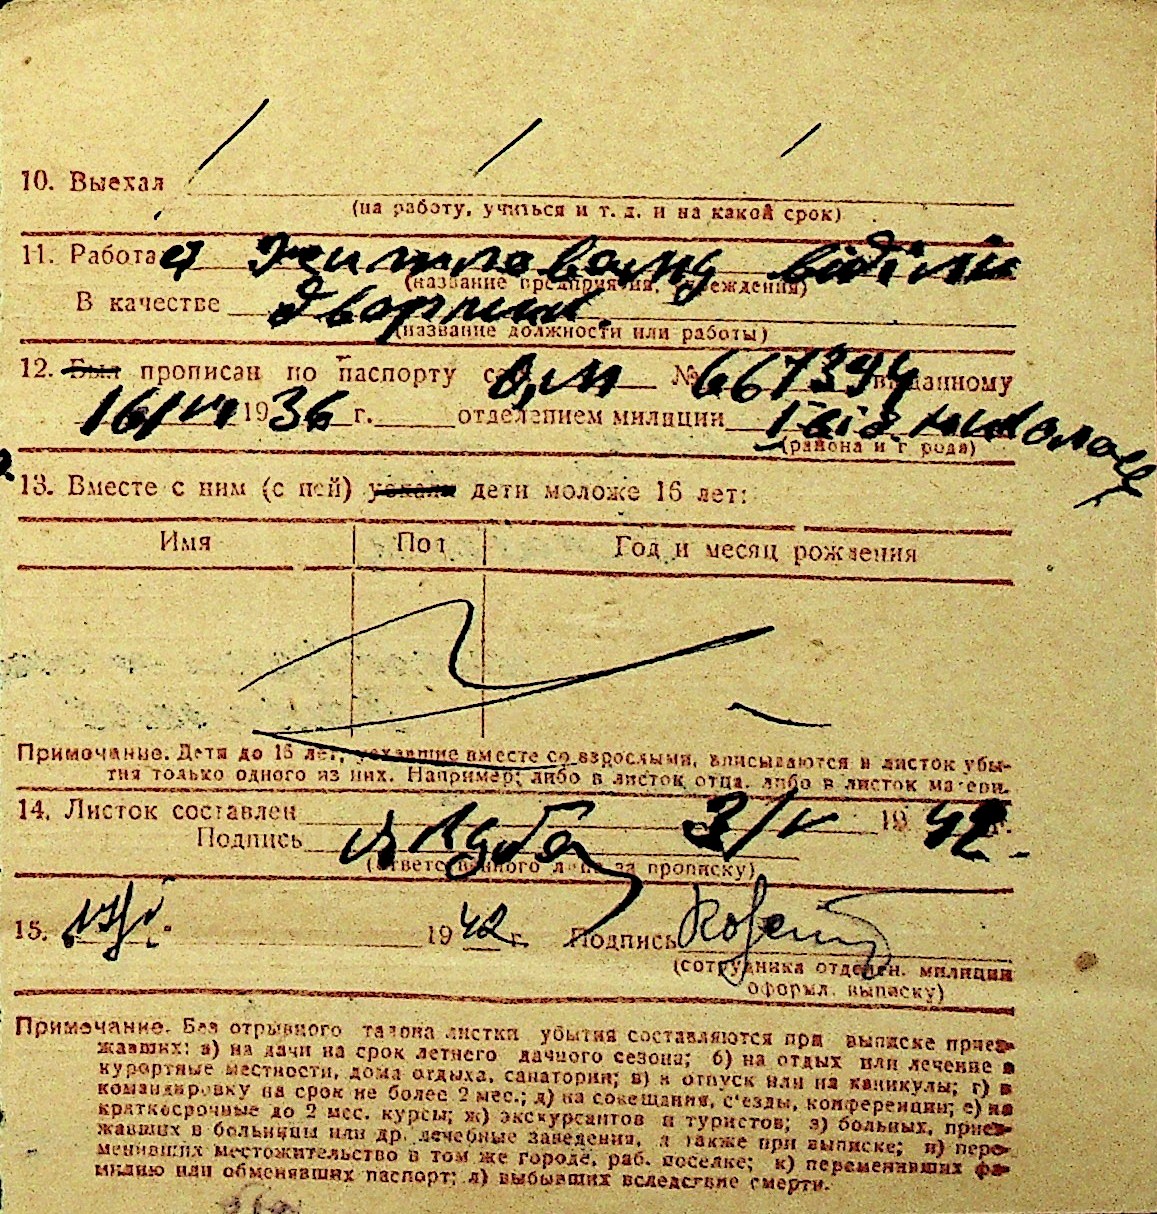 10. Выехал
(на работу, учиться и т. д. и на какой срок)
11. Работает Житловому відділі
(название предприятия, учреждения)
В качестве дворник
(название должности или работы)
12. Был прописан по паспорту се №667394 выданному
16/VII 1936 г. отделением милиции
(района и г рода)
13. Вместе с ним (с ней) уехали дети моложе 16 лет:
Имя Пол Год и месяц рождения
Примечание. Дети до 16 лет, уехавшие вместе со взрослыми, вписываются в листок убы-
тия только одного из них. Например: либо в листок отца, либо в листок матери.
14. Листок составлен 3/V 1942 г.
Подпись
(ответственного лица за прописку)
15. 1942 г. Подпись
(сотрудника отделен. милиции
оформл. выписку)
Примечание. Без отрывного талона листки убытия составляются при выписке приез-
жавших: а) на дачи на срок летнего дачного сезона; б) на отдых или лечение в
курортные местности, дома отдыха, санатории; в) в отпуск или на каникулы; г) в
командировку на срок не более 2 мес.; д) на совещания, с'езды, конференции; е) на
краткосрочные до 2 мес. курсы; ж) экскурсантов и туристов; з) больных, приез-
жавших в больницы или др. лечебные заведения, а также при выписке; и) пере-
менивших местожительство в том же городе, раб. поселке; к) переменивших фа-
милию или обменявших паспорт; л) выбывших вследствие смерти.